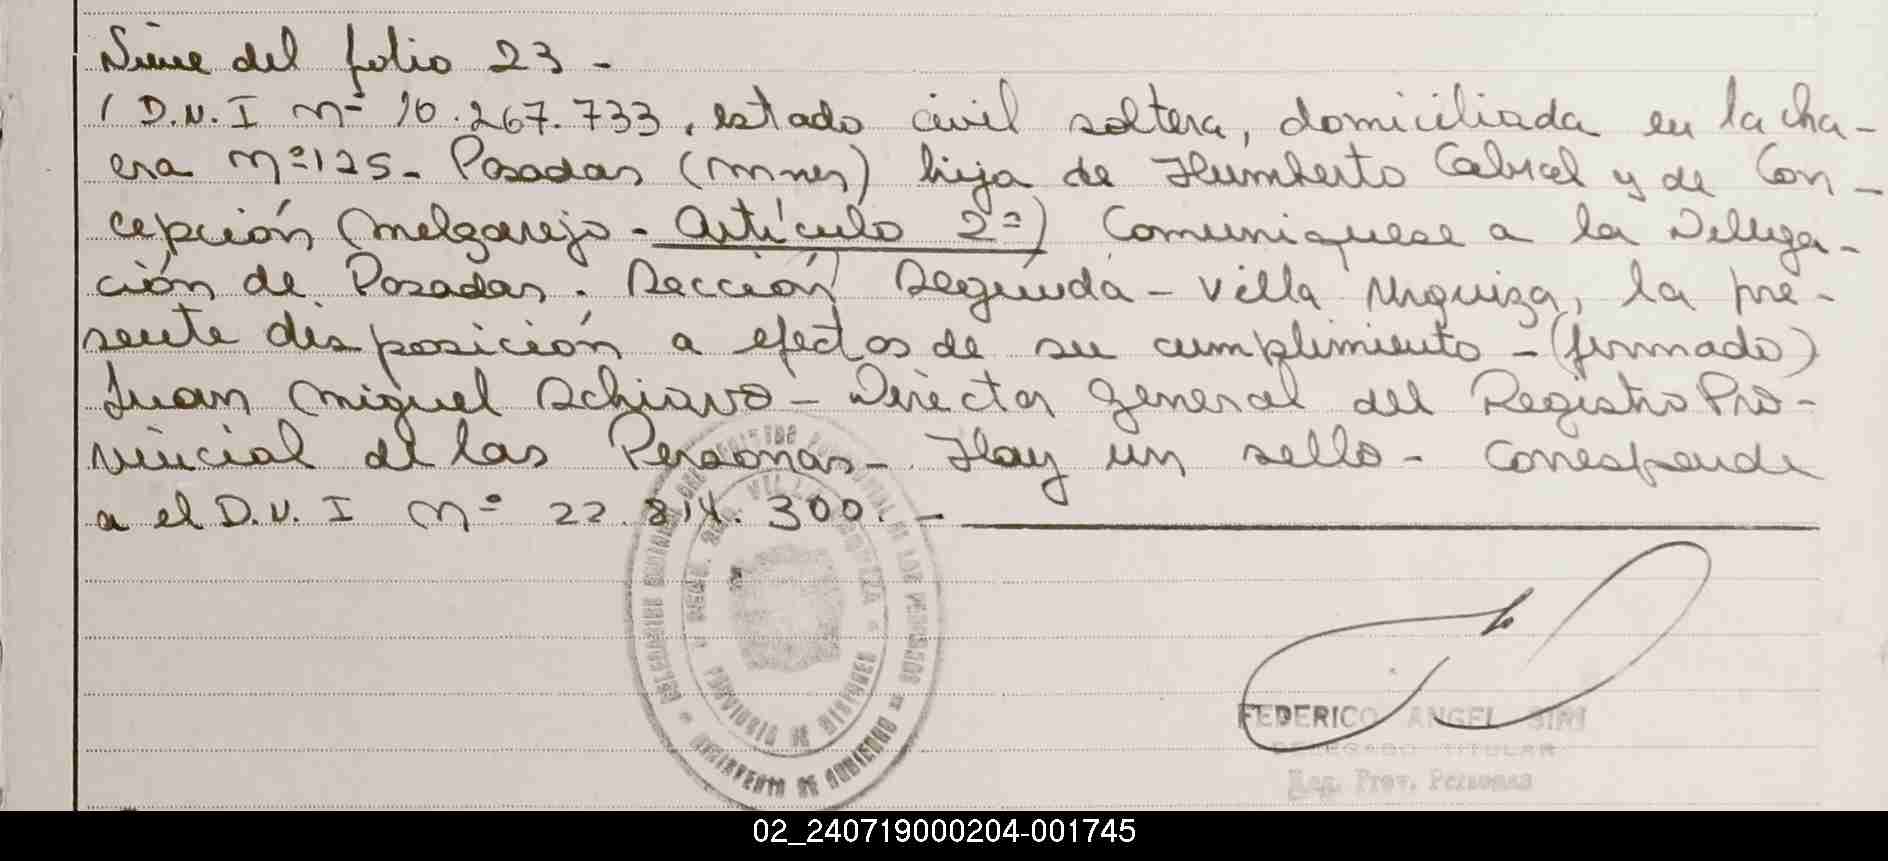 Viene del folio 23 -
( D.N.I nº 10.267.733, estado civil soltera, domiciliada en la cha-
cra nº 125 - Posadas (Mnes) hija de Humberto Cabral y de Con-
cepción Melgarejo - Artículo 2º) Comuniquese a la Delega-
ción de Posadas. Sección Segunda - Villa Urquiza, la pre-
sente disposición a efectos de su cumplimiento - (firmado)
Juan Miguel Schiavo - Director General del Registro Pro-
vincial de las Personas - Hay un sello - Corresponde
a el D.N.I nº 22.814.300. -
FEDERICO ANGEL SIRI
DELEGADO TITULAR
Reg. Prov. Personas
02_240719000204-001745